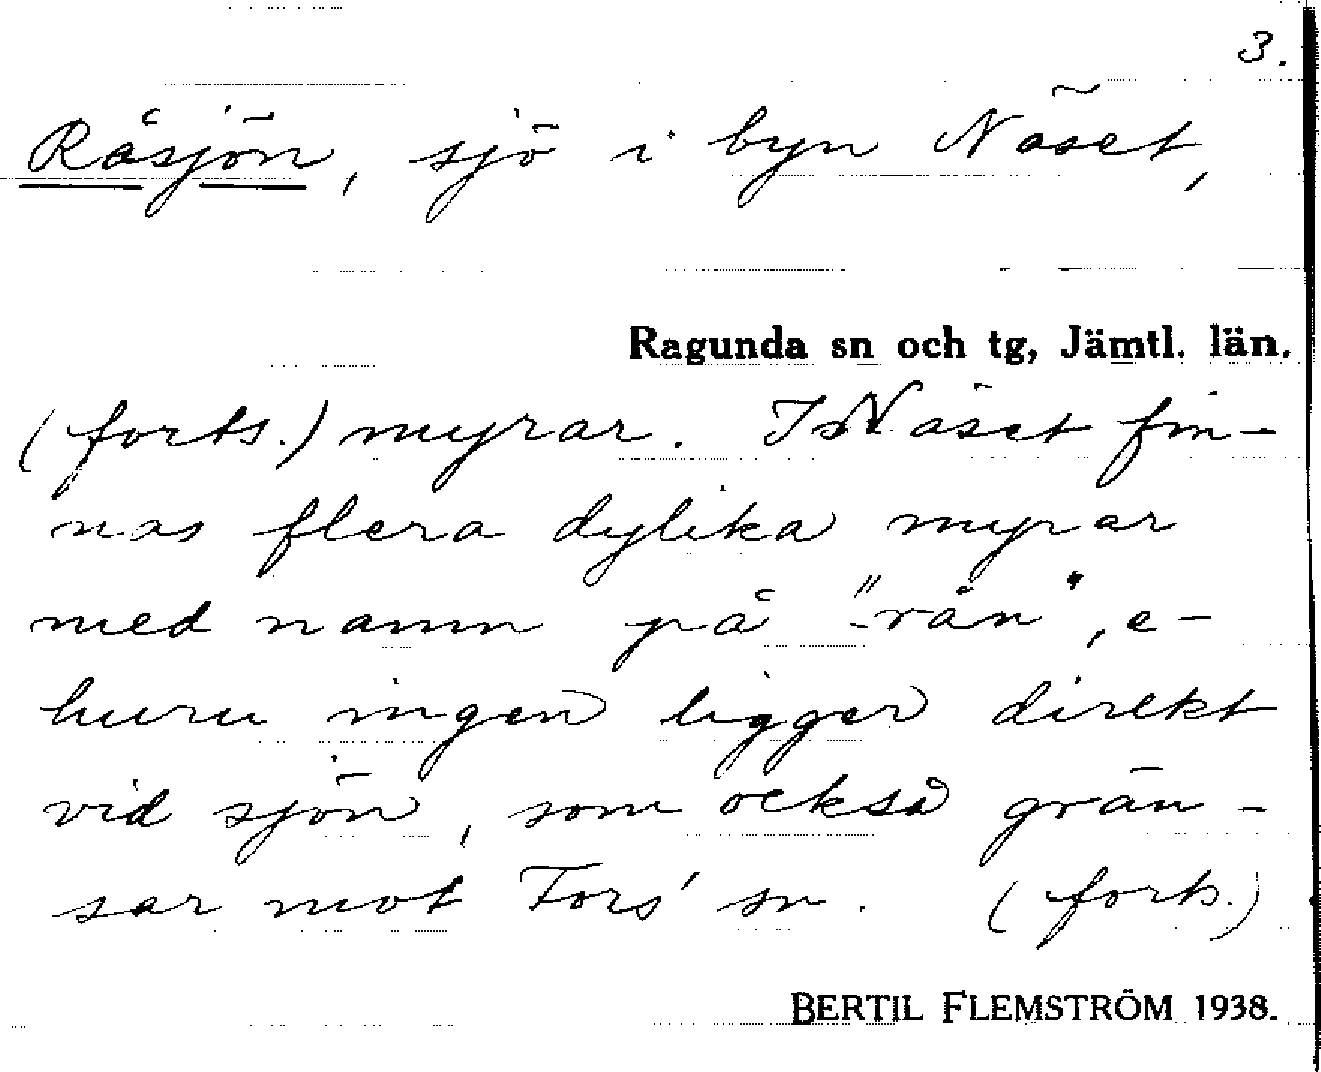 3.
Råsjön, sjö i byn Näset,
Ragunda sn och tg, Jämtl. län.
(forts.) myrar. I Näset fin-
nas flera dylika myrar
med namn på "-rån", e-
huru ingen ligger direkt
vid sjön, som också grän-
sar mot Fors' sn. (forts.)
BERTIL FLEMSTRÖM 1938.